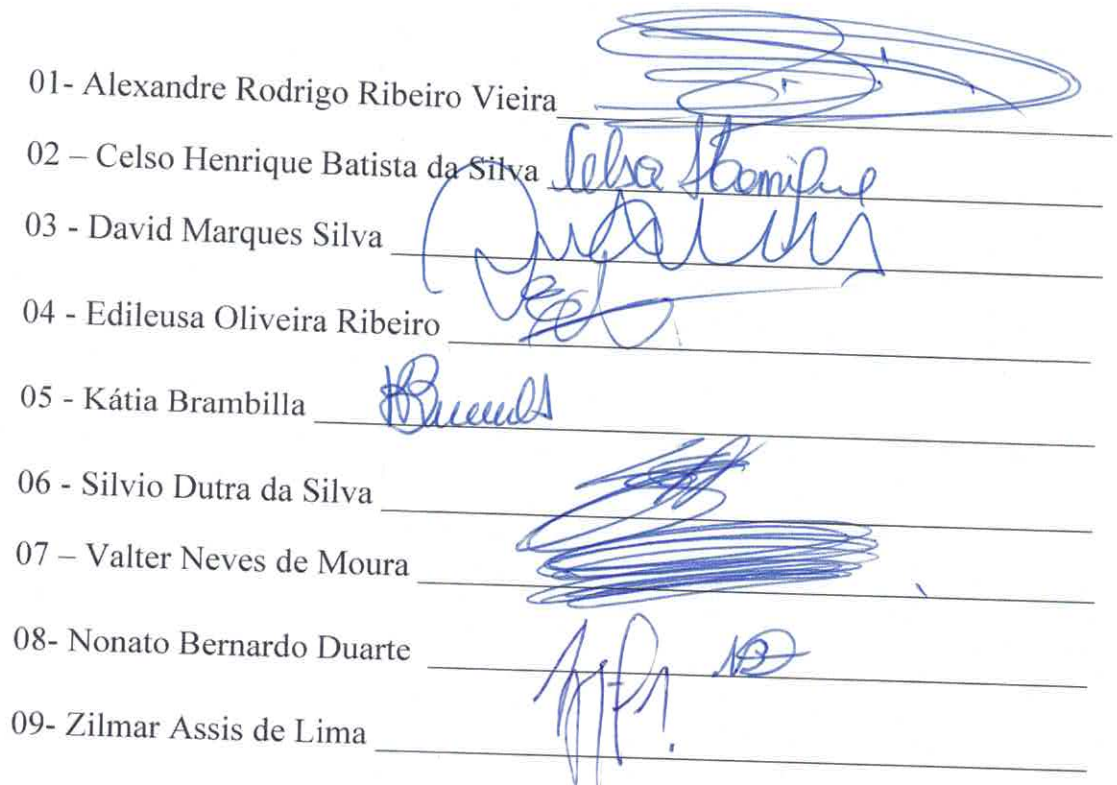 01- Alexandre Rodrigo Ribeiro Vieira
02 – Celso Henrique Batista da Silva Celso Henrique
03 - David Marques Silva
04 - Edileusa Oliveira Ribeiro
05 - Kátia Brambilla
06 - Silvio Dutra da Silva
07 – Valter Neves de Moura
08- Nonato Bernardo Duarte
09- Zilmar Assis de Lima